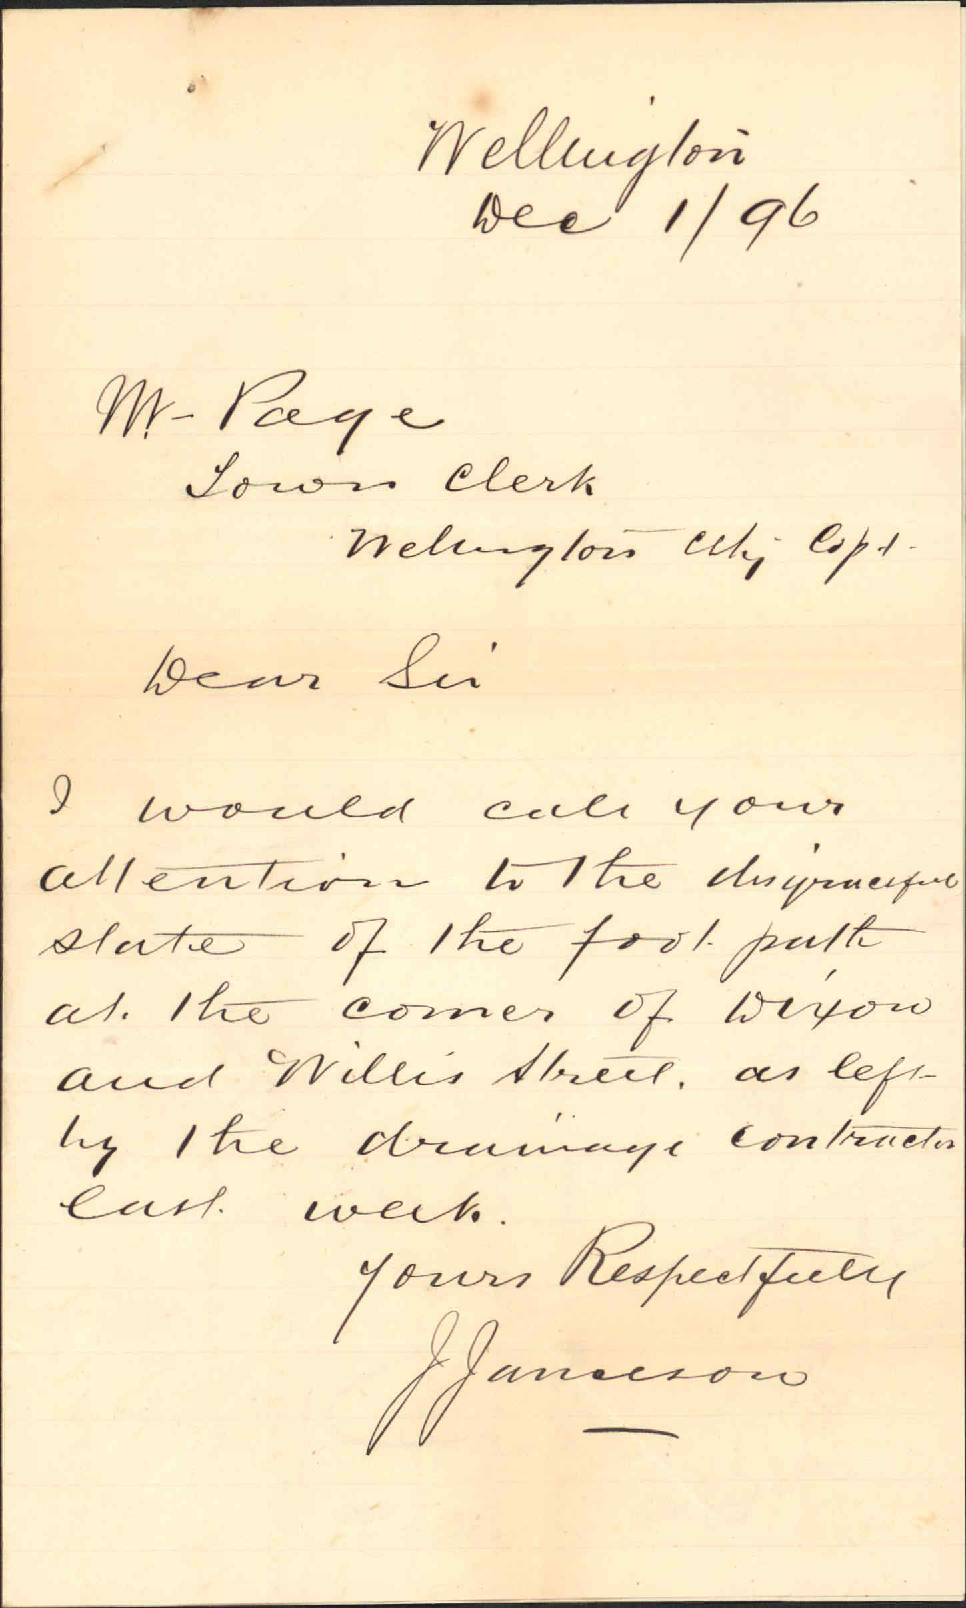 Wellington
Dec 1/96
Mr. Page
Town Clerk
Wellington City
Dear Sir
I would call your
attention to the disgraceful
state of the foot path
at the corner of Dixon
and Willis Street. as left
by the drainage contractor
last week.
Yours Respectfully
J Jameson